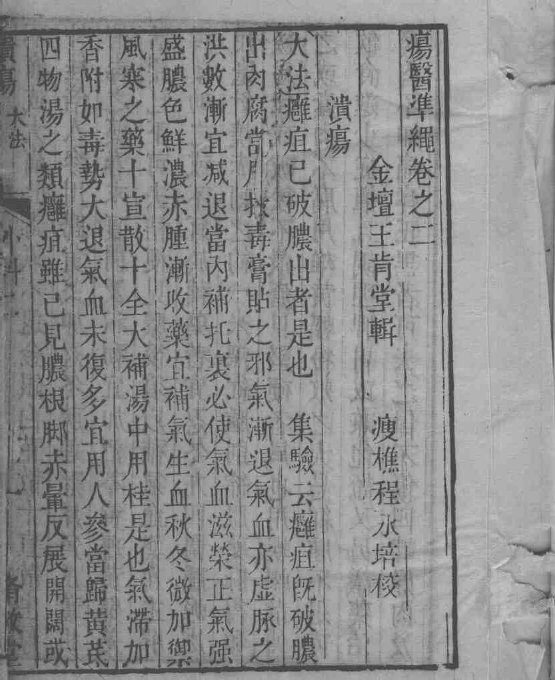 瘍醫準繩卷之二
金壇王肯堂輯 瘦樵程永培校
潰瘍
大法癰疽已破膿出者是也 集驗云癰疽旣破膿
出肉腐當用拔毒膏貼之邪氣漸退氣血亦虛脉之
洪數漸宜减退當內補托裏必使氣血滋榮正氣强
盛膿色鮮濃赤腫漸收藥宜補氣生血秋冬微加禦
風寒之藥十宣散十全大補湯中用桂是也氣滯加
香附如毒勢大退氣血未復多宜用人參當歸黃芪
四物湯之類癰疽雖已見膿根脚赤暈反展開闊或
潰瘍 大法 外科二